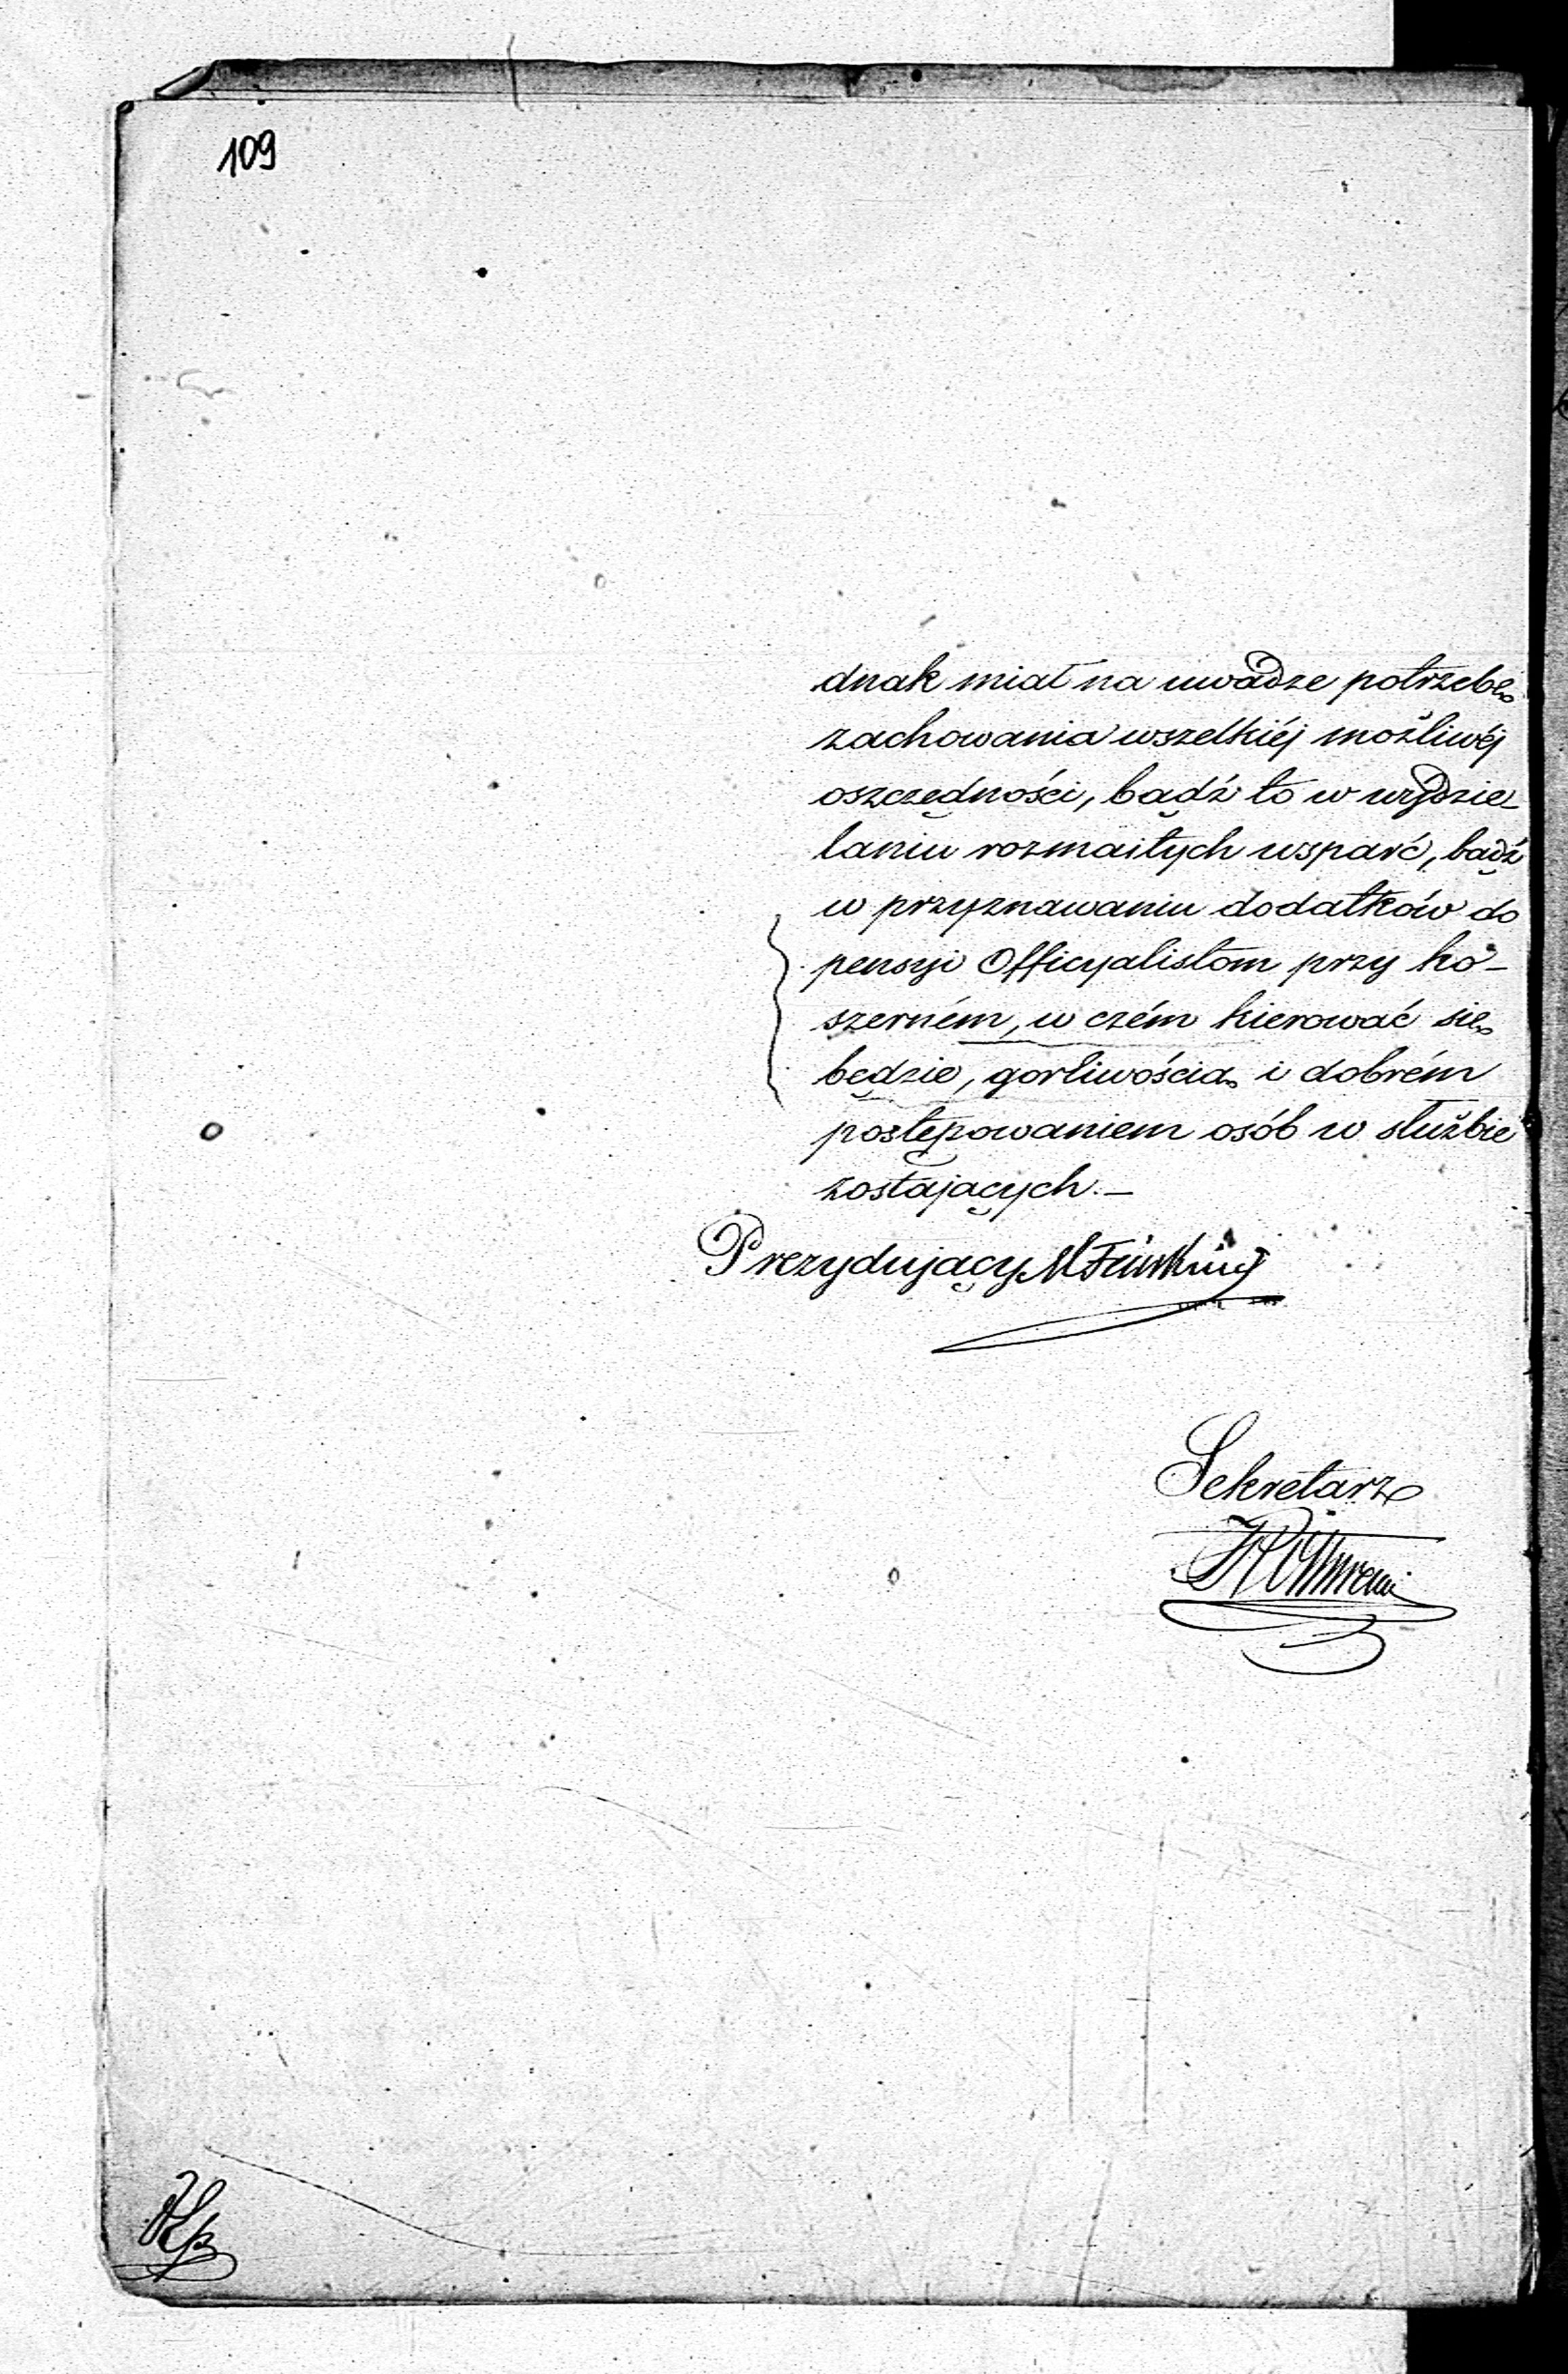 109
dnak miał na uwadze potrzebę
zachowania wszelkiéj możliwéj
oszczędności, bądź to w wydzie-
laniu rozmaitych wsparć, bądź
w przyznawaniu dodatków do
pensyi Officyalistom przy ko-
szerném, w czém kierować się
będzie, gorliwością i dobrém
postępowaniem osób w służbie
zostających.—
Prezydujący
Sekretarz